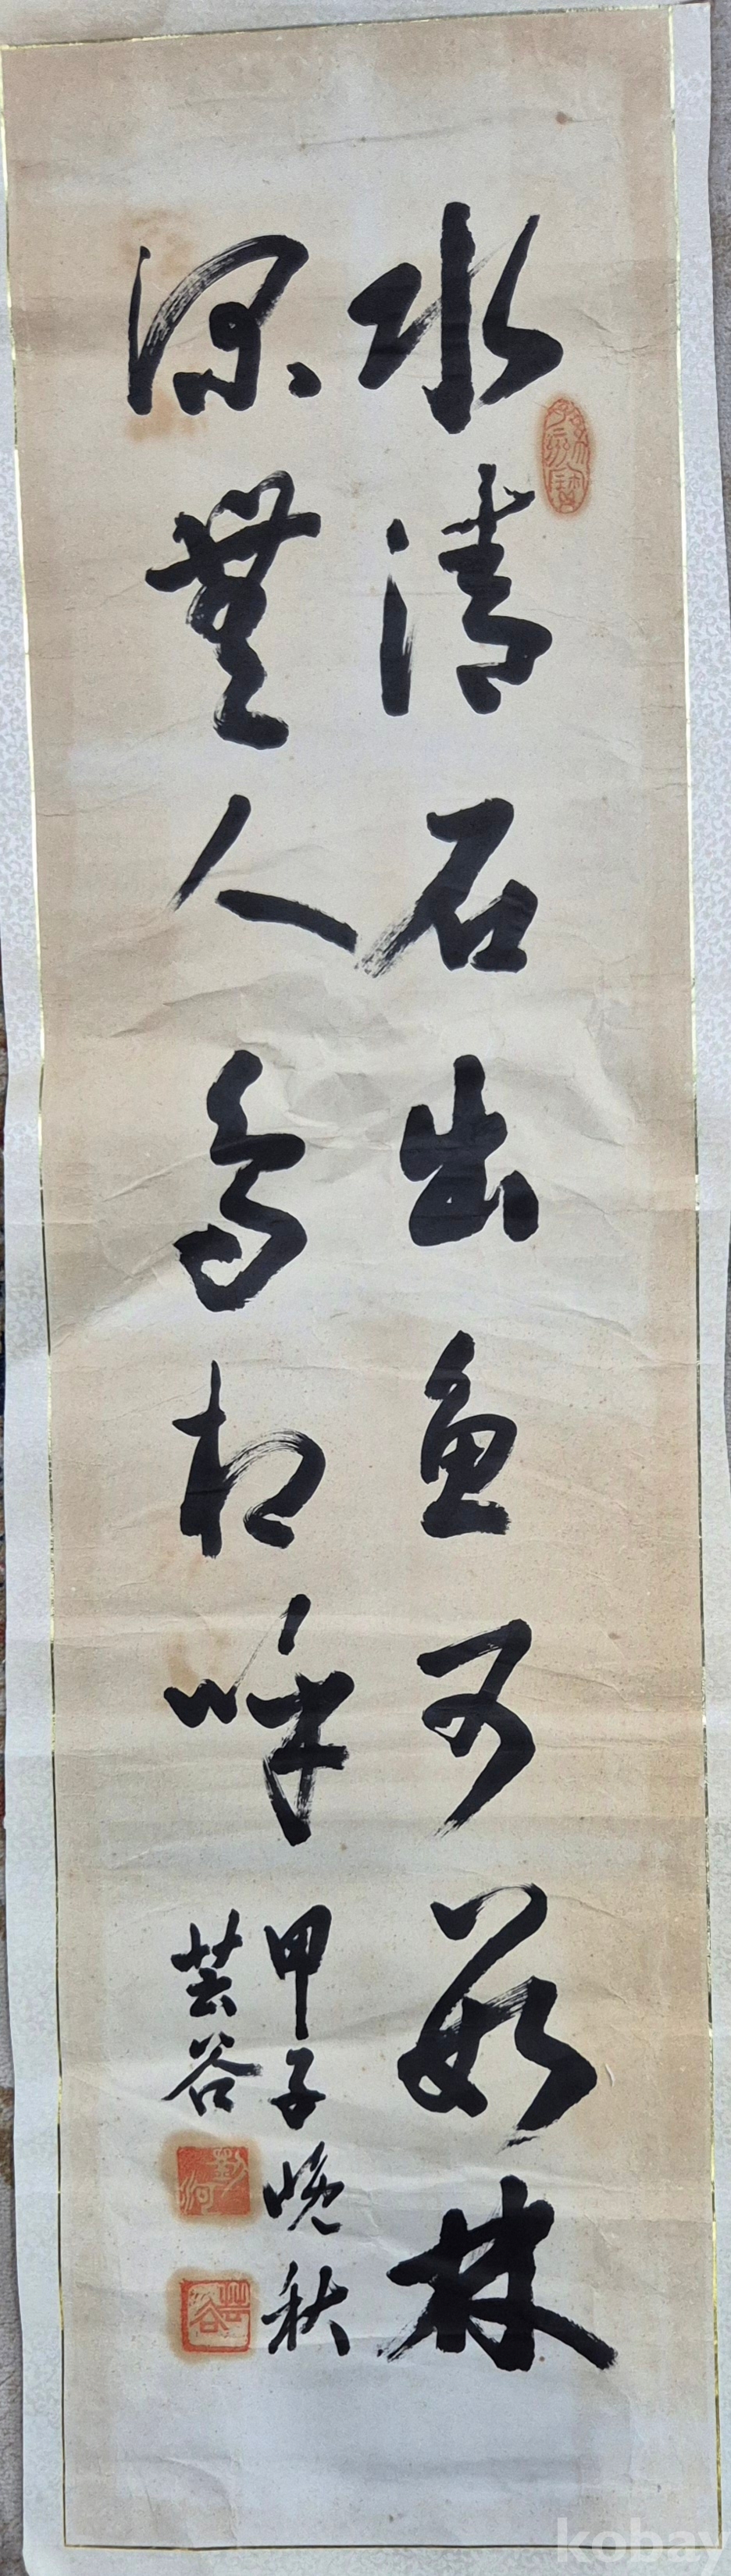 水清石出魚可數林
深無人鳥相呼
甲子晚秋
芸谷
芸谷
kobay